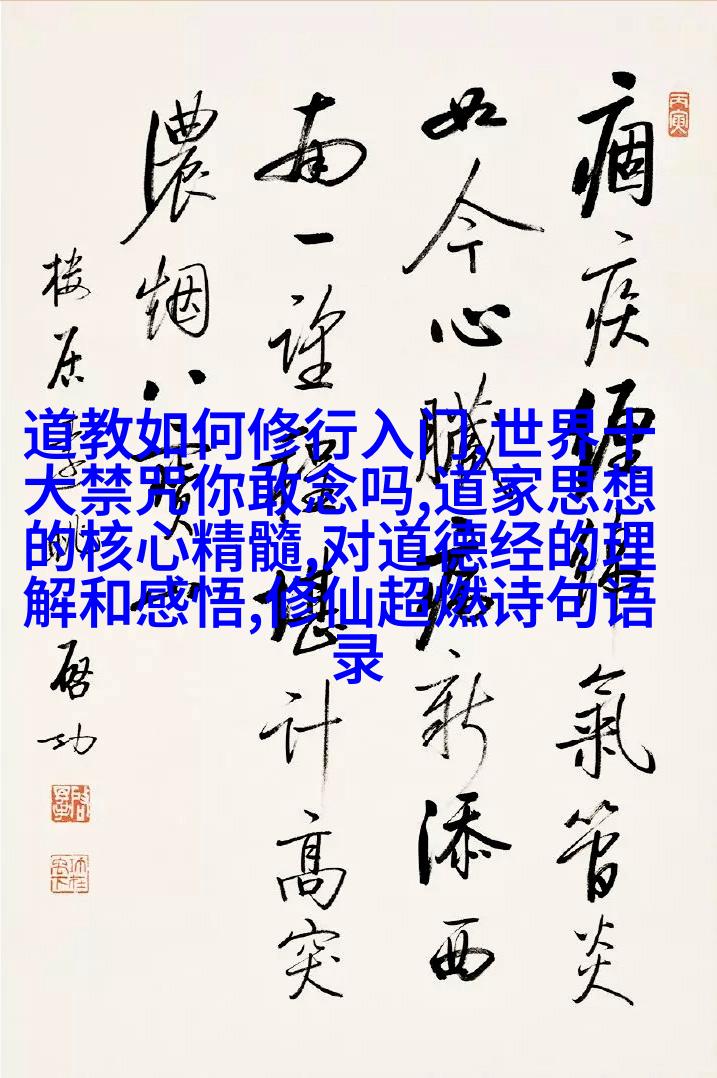 道教如何修行入门,世界十
大禁咒你敢念吗,道家思想
的核心精髓,对道德经的理
解和感悟,修仙超燃诗句语
录
丙寅
痼疾纏綿氣管炎
如今心臟病新添西
南一望堪計高突
濃烟八
樓居
啓功